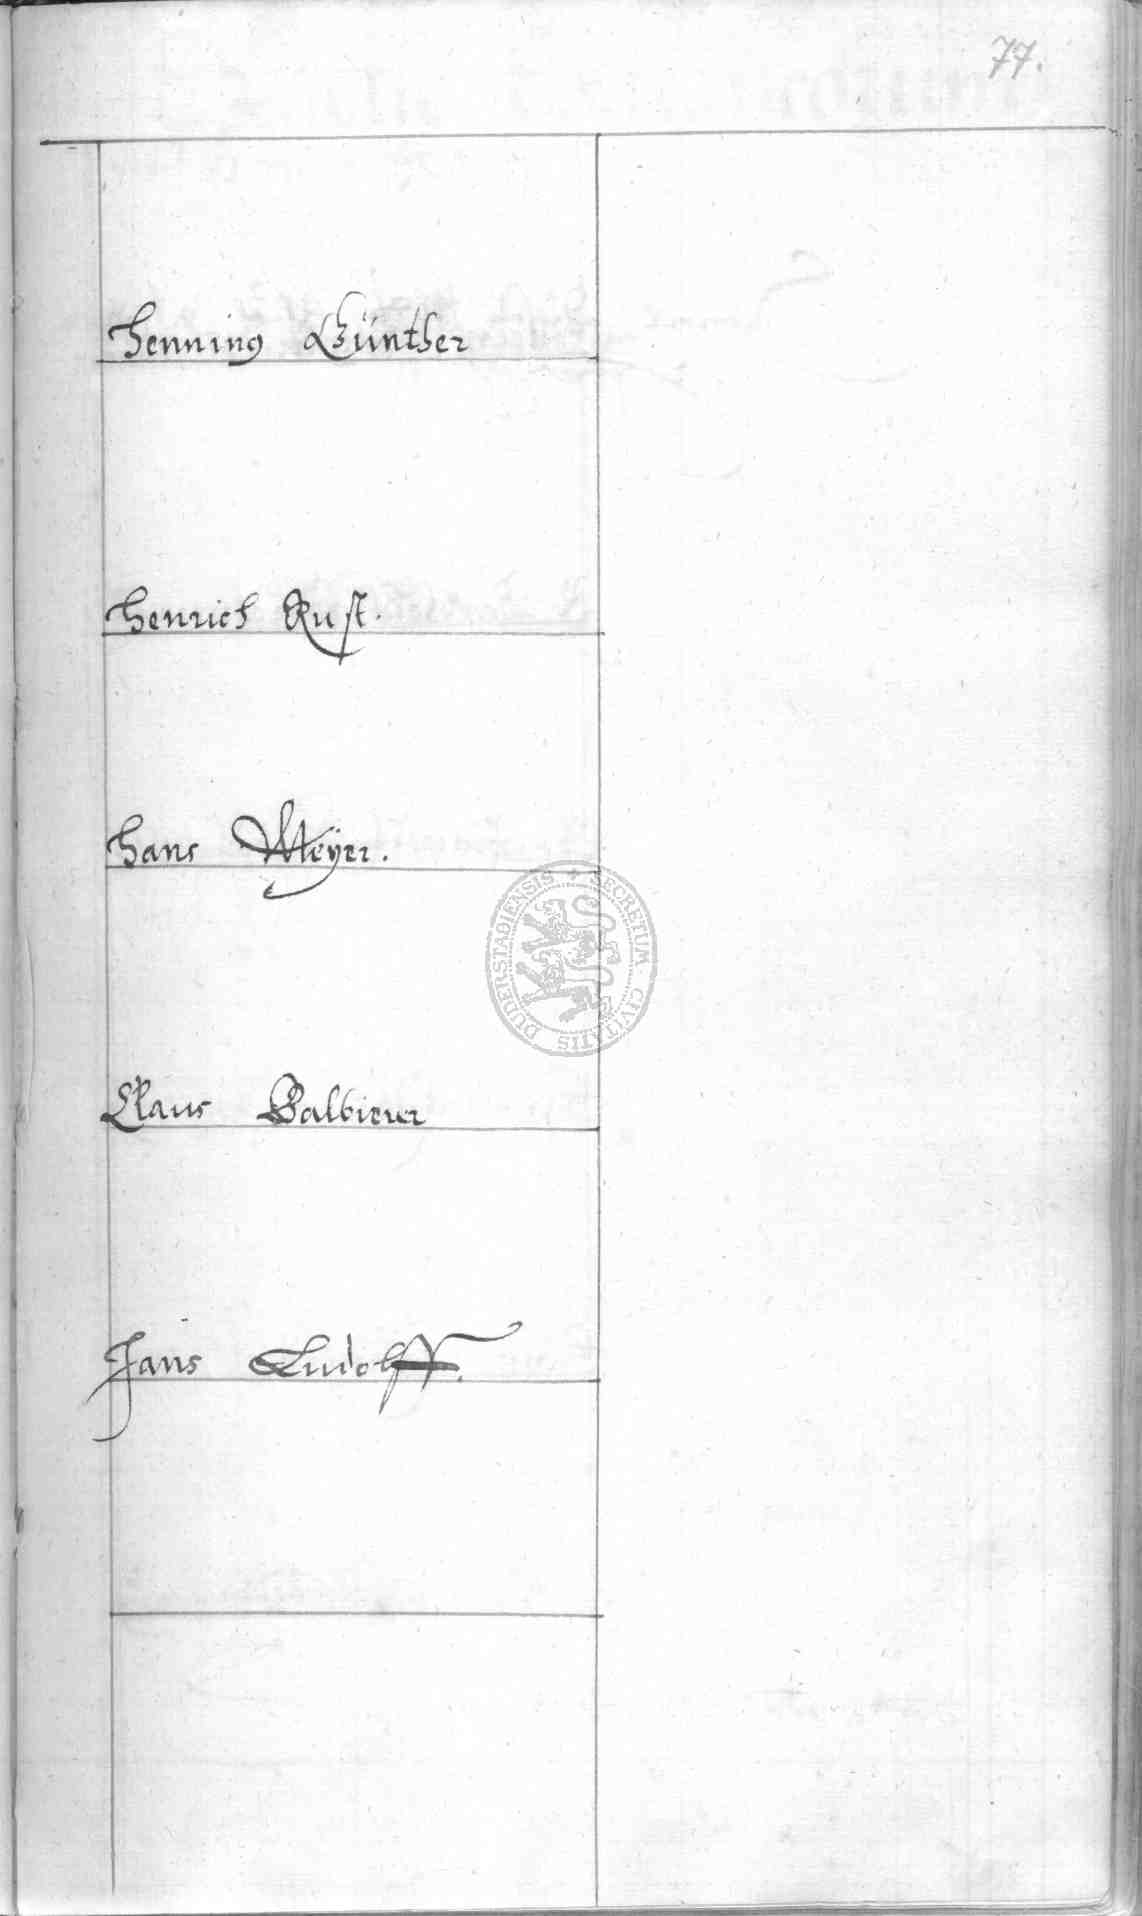 77.
Henning Günther
Henrich Rust.
Hans Meÿer.
Claus Balbirer
Hans Ludolff.
SECRETUM CIVITATIS DUDERSTADIENSIS